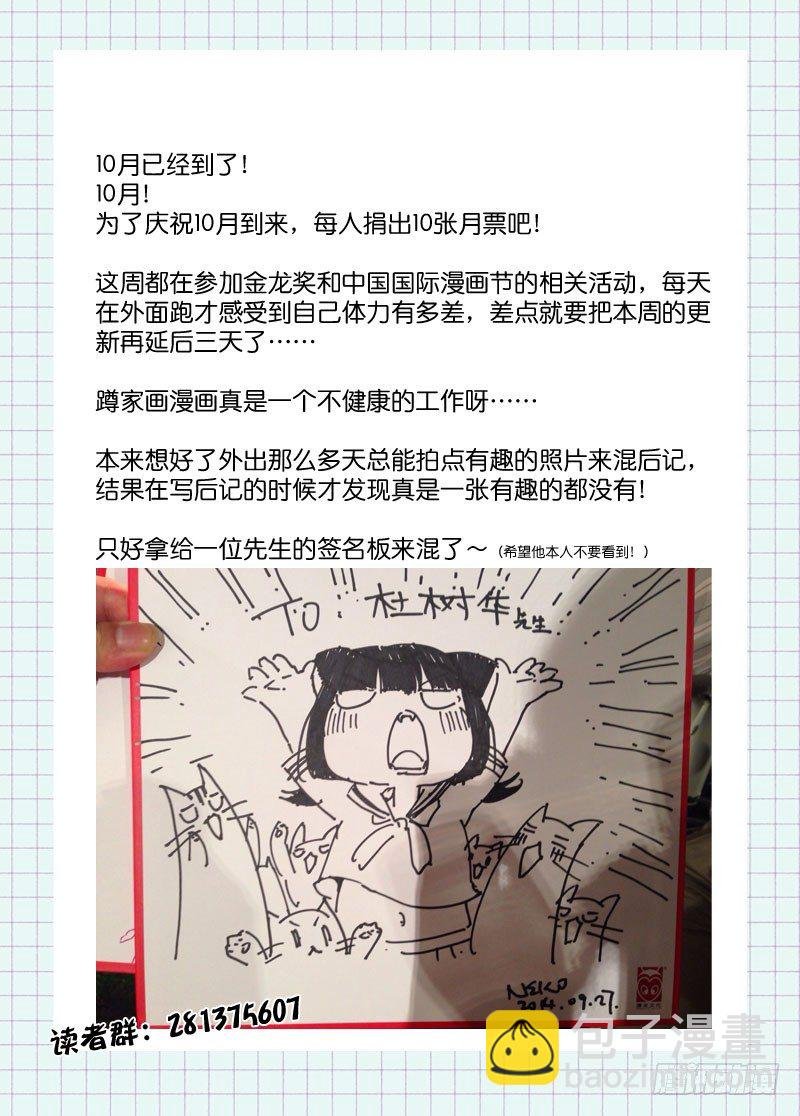 10月已经到了!
10月!
为了庆祝10月到来，每人捐出10张月票吧!
这周都在参加金龙奖和中国国际漫画节的相关活动，每天
在外面跑才感受到自己体力有多差，差点就要把本周的更
新再延后三天了……
蹲家画漫画真是一个不健康的工作呀……
本来想好了外出那么多天总能拍点有趣的照片来混后记，
结果在写后记的时候才发现真是一张有趣的都没有!
只好拿给一位先生的签名板来混了～（希望他本人不要看到！）
TO：杜树华先生
NEKO
2014.09.27.
读者群：281375607
包子漫畫
baozimh.com